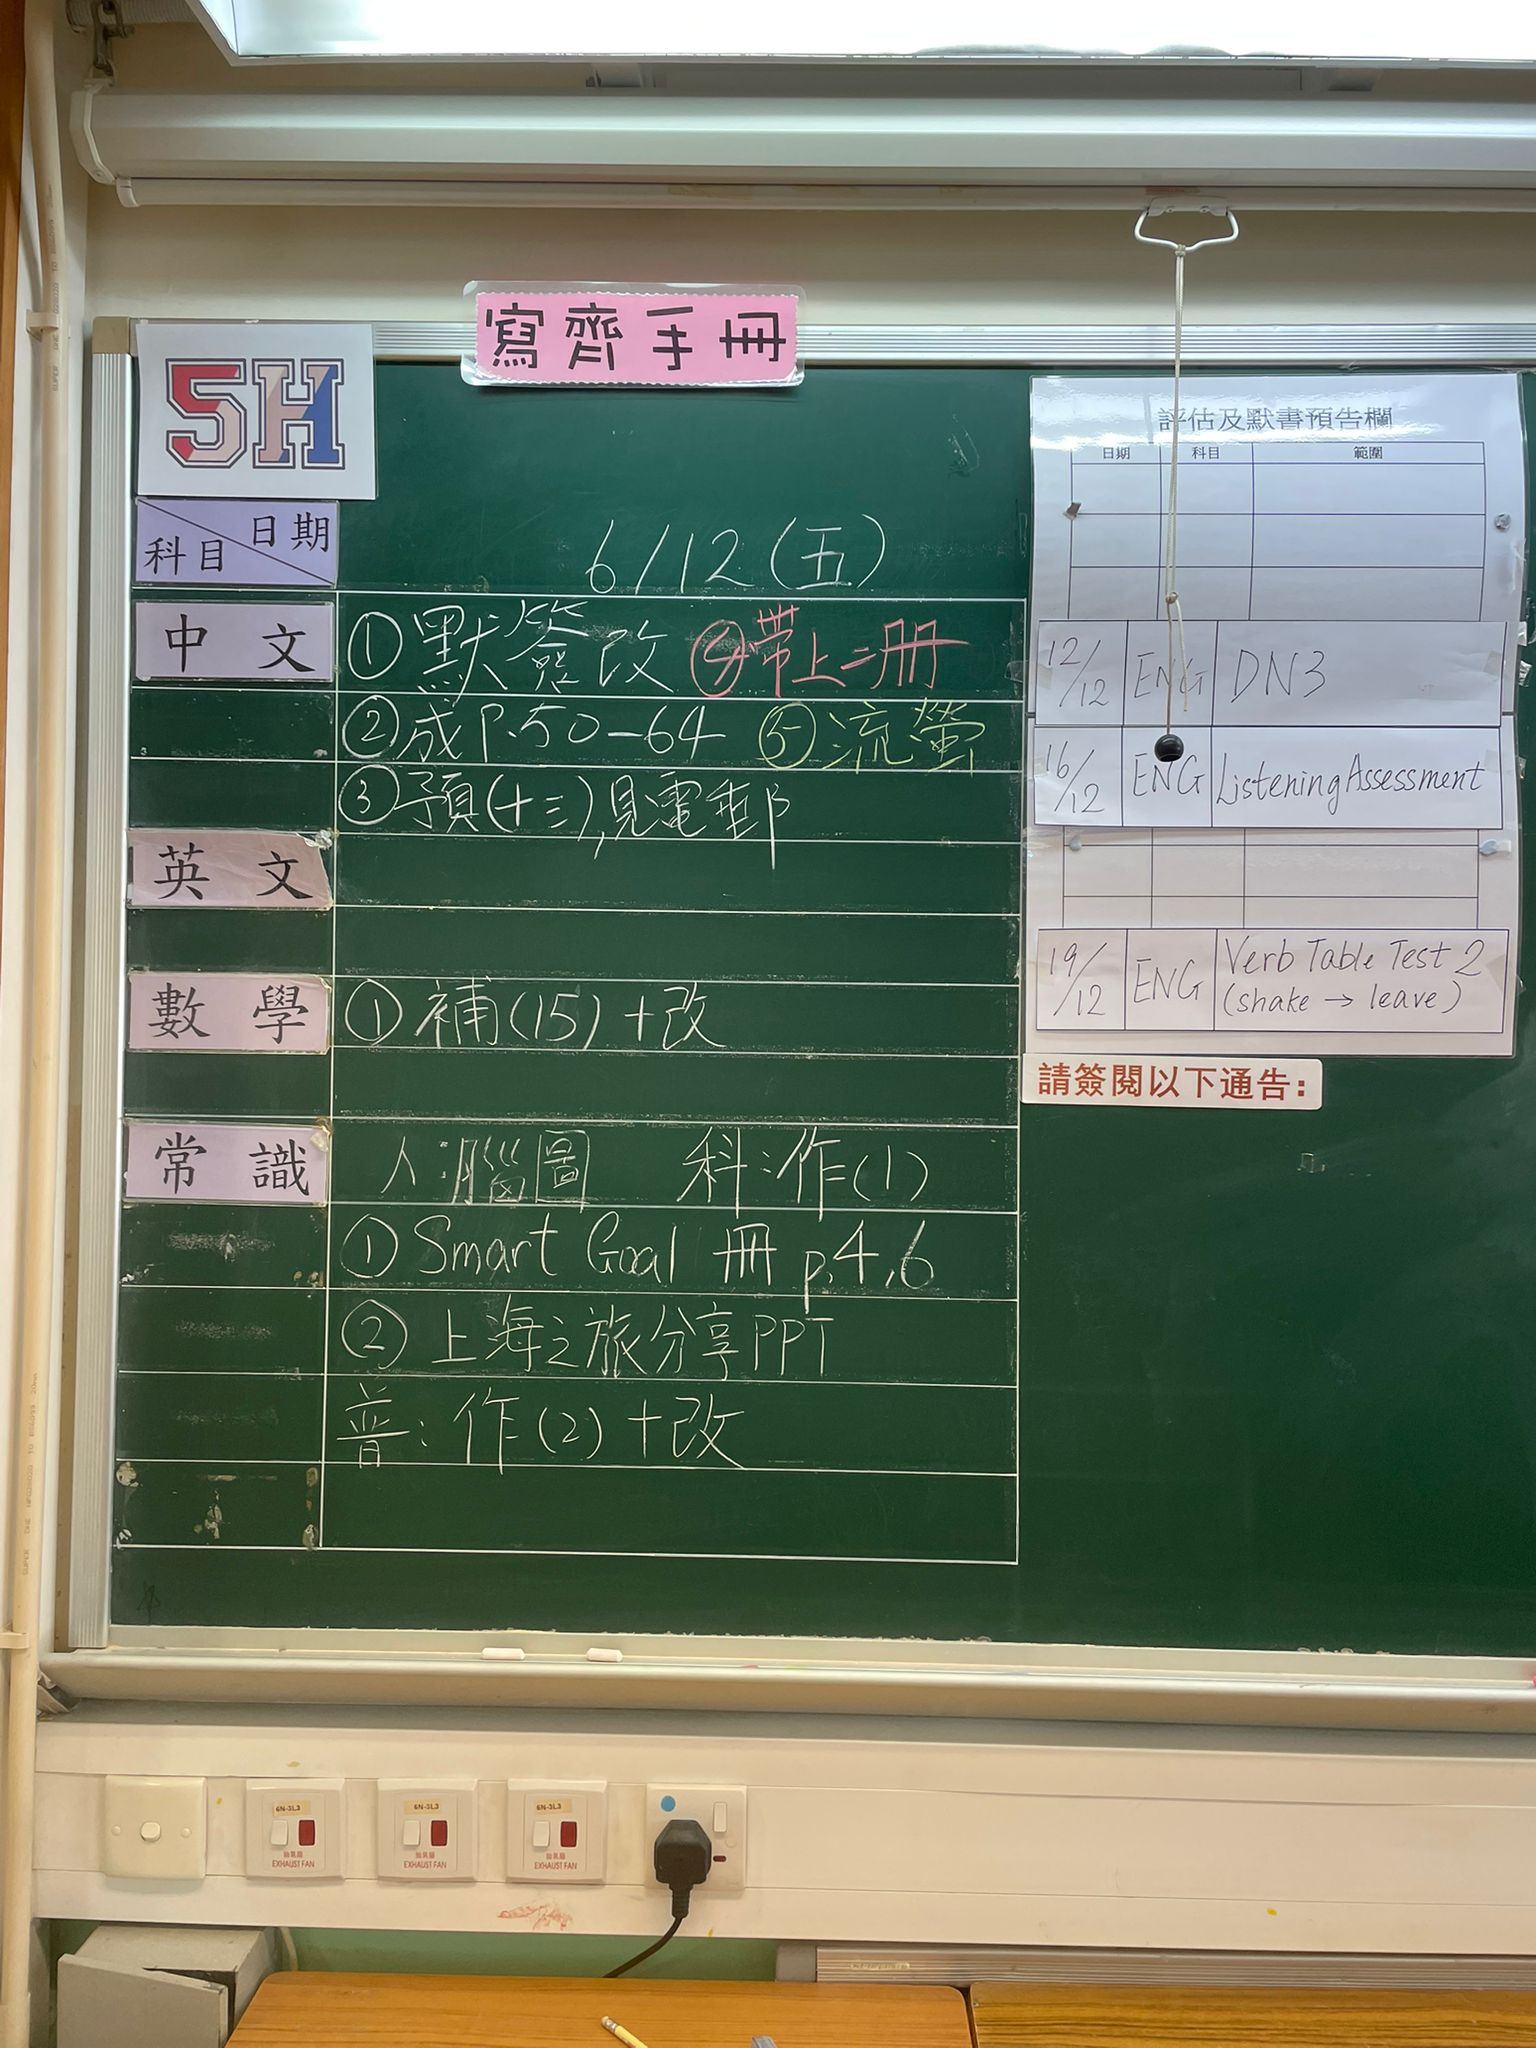 寫齊手冊
5H
日期
科目
6/12(五)
中文 ①默簽改 ④帶上二冊
②成P.50-64 ⑤流螢
③預(十三),見電郵
英文
數學 ①補(15)+改
常識 人:腦圖 科:作(1)
①Smart Goal 冊 p.4,6
②上海之旅分享PPT
普:作(2)+改
評估及默書預告欄
日期 科目 範圍
12/12 ENG DN3
16/12 ENG Listening Assessment
19/12 ENG Verb Table Test 2
(shake → leave)
請簽閱以下通告:
6N-3L3
抽氣扇
EXHAUST FAN
6N-3L3
抽氣扇
EXHAUST FAN
6N-3L3
抽氣扇
EXHAUST FAN